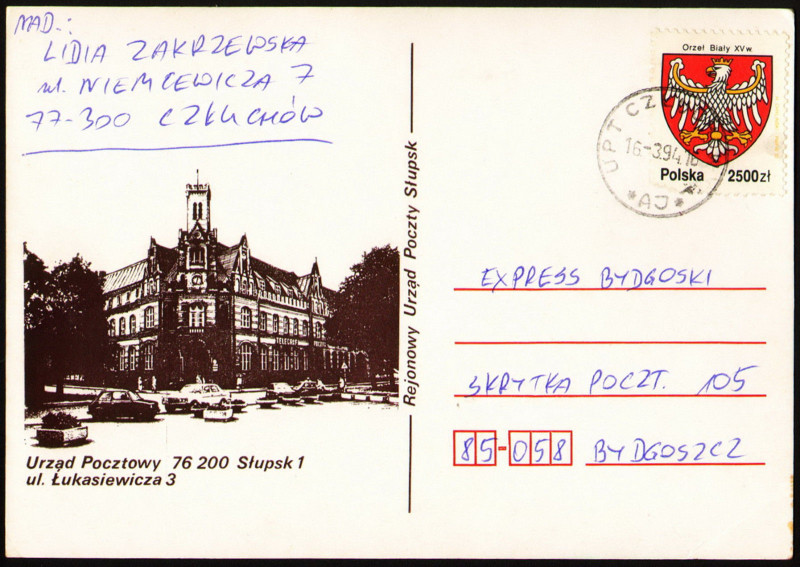 NAD.:
LIDIA ZAKRZEWSKA
ul. NIEMCEWICZA 7
77-300 CZŁUCHÓW
Orzeł Biały XVw.
Polska 2500zł
UPT CZŁ
16.-3.94.16
*AJ*
Rejonowy Urząd Poczty Słupsk
EXPRESS BYDGOSKI
SKRYTKA POCZT. 105
85-058 BYDGOSZCZ
TELEGRAF
Urząd Pocztowy 76 200 Słupsk 1
ul. Łukasiewicza 3